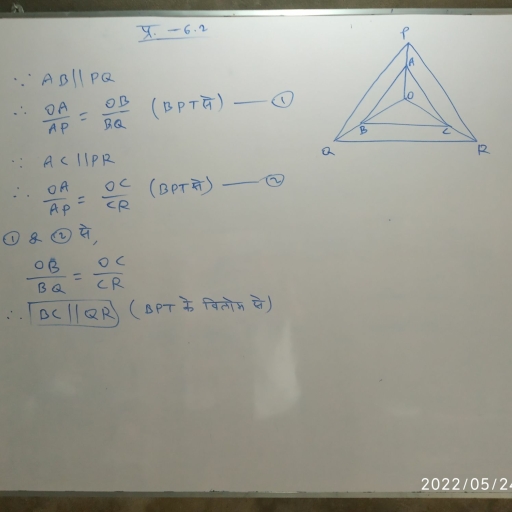 प्र. - 6.2
∵ AB || PQ
∴ OA/AP = OB/BQ (BPT से) — ①
∵ AC || PR
∴ OA/AP = OC/CR (BPT से) — ②
① & ② से,
OB/BQ = OC/CR
∴ BC || QR (BPT के विलोम से)
P
A
O
B
C
Q
R
2022/05/24